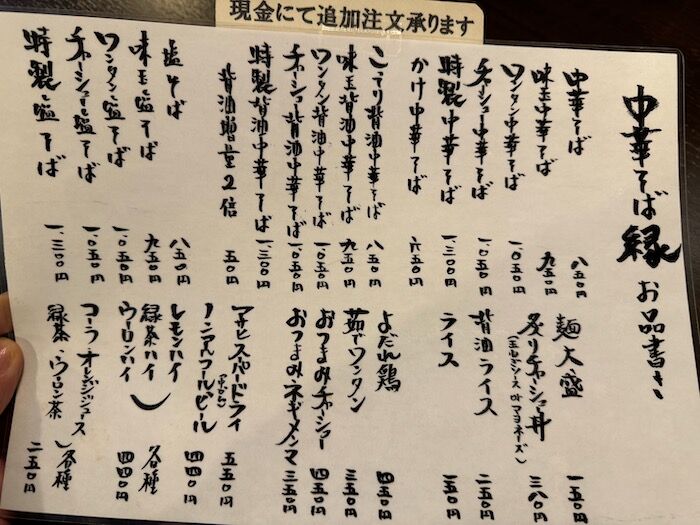 現金にて追加注文承ります
中華そば 縁 お品書き
中華そば 八五〇円
味玉中華そば 九五〇円
ワンタン中華そば 一、〇五〇円
チャーシュー中華そば 一、〇五〇円
特製中華そば 一、三〇〇円
かけ中華そば 六五〇円
こってり背油中華そば 八五〇円
味玉背油中華そば 九五〇円
ワンタン背油中華そば 一、〇五〇円
チャーシュー背油中華そば 一、〇五〇円
特製背油中華そば 一、三〇〇円
背油増量2倍 五〇円
塩そば 八五〇円
味玉塩そば 九五〇円
ワンタン塩そば 一、〇五〇円
チャーシュー塩そば 一、〇五〇円
特製塩そば 一、三〇〇円
麺大盛 一五〇円
炙りチャーシュー丼 三八〇円
(玉ねぎソース or マヨネーズ)
背油ライス 二五〇円
ライス 一五〇円
よだれ鶏 四五〇円
茹でワンタン 三五〇円
おつまみチャーシュー 四五〇円
おつまみネギメンマ 三五〇円
アサヒスーパードライ 五五〇円
ノンアルコールビール 四四〇円
レモンハイ
緑茶ハイ 各種
ウーロンハイ 四四〇円
コーラ・オレンジジュース 各種
緑茶・ウーロン茶 二五〇円